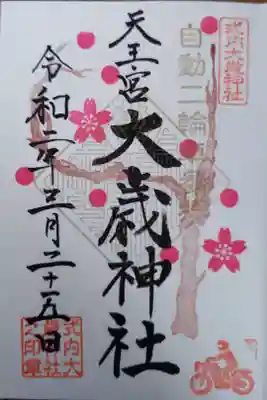 式内大歳神社
自動二輪
天王宮
大歳神社
令和二年三月二十五日
式内大
歳神社
之印章